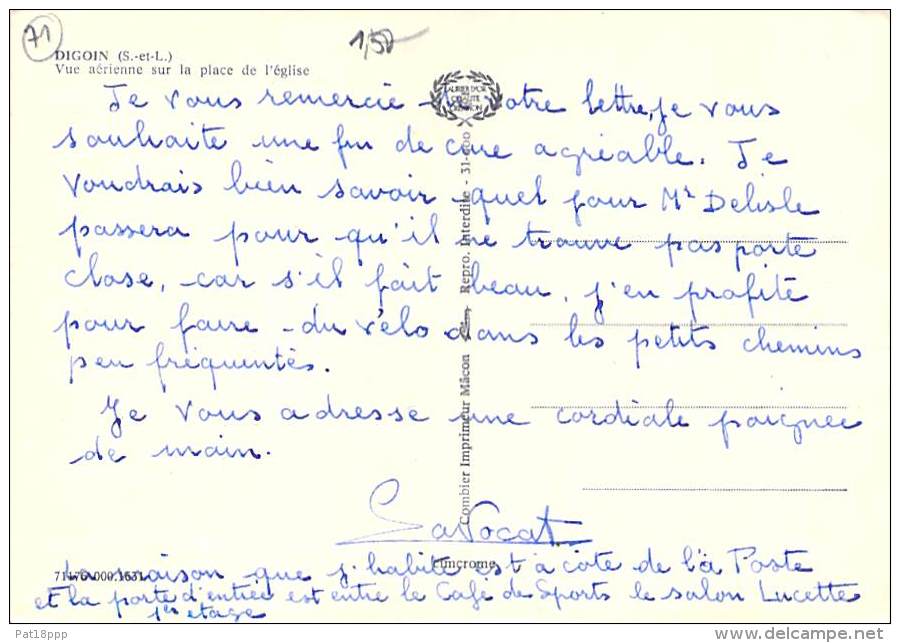 71
1,50
DIGOIN (S.-et-L.)
Vue aérienne sur la place de l'église
Je vous remercie de votre lettre, je vous
souhaite une fin de cure agréable. Je
voudrais bien savoir quel jour Mr Delisle
passera pour qu'il ne trouve pas porte
close, car s'il fait beau, j'en profite
pour faire du vélo dans les petits chemins
peu fréquentés.
Je vous adresse une cordiale poignée
de main.
Lavocat
La maison que j'habite est à côté de la Poste
et la porte d'entrée est entre le Café des Sports le salon Lucette
1er etage
Combier Imprimeur Mâcon
Repro. Interdite - 31-600
Cimcrome
Pat18ppp
delcampe.net